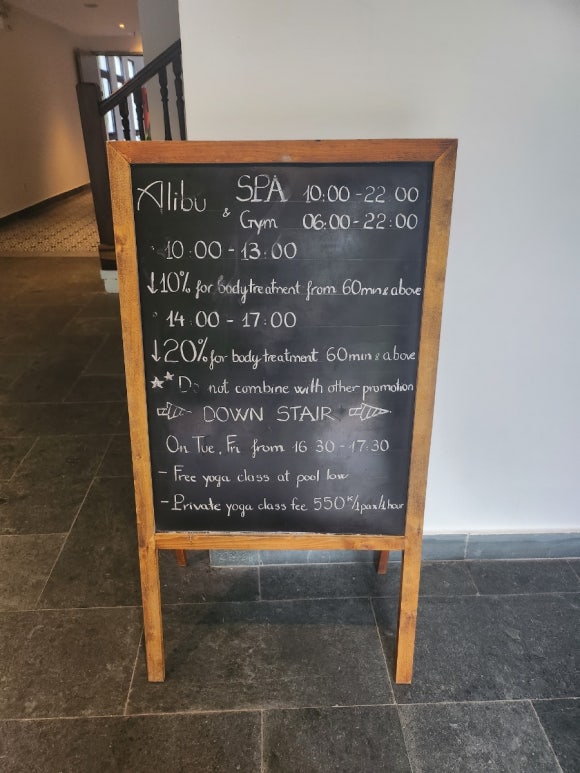 Alibu SPA 10:00-22 00
& Gym 06:00-22:00
10:00-13:00
↓10% for body treatment from 60mins & above
14:00-17:00
↓20% for body treatment 60mins & above
** Do not combine with other promotion
DOWN STAIR
On Tue, Fri from 16 30-17:30
- Free yoga class at pool low
- Private yoga class fee 550K/1pax/1hour